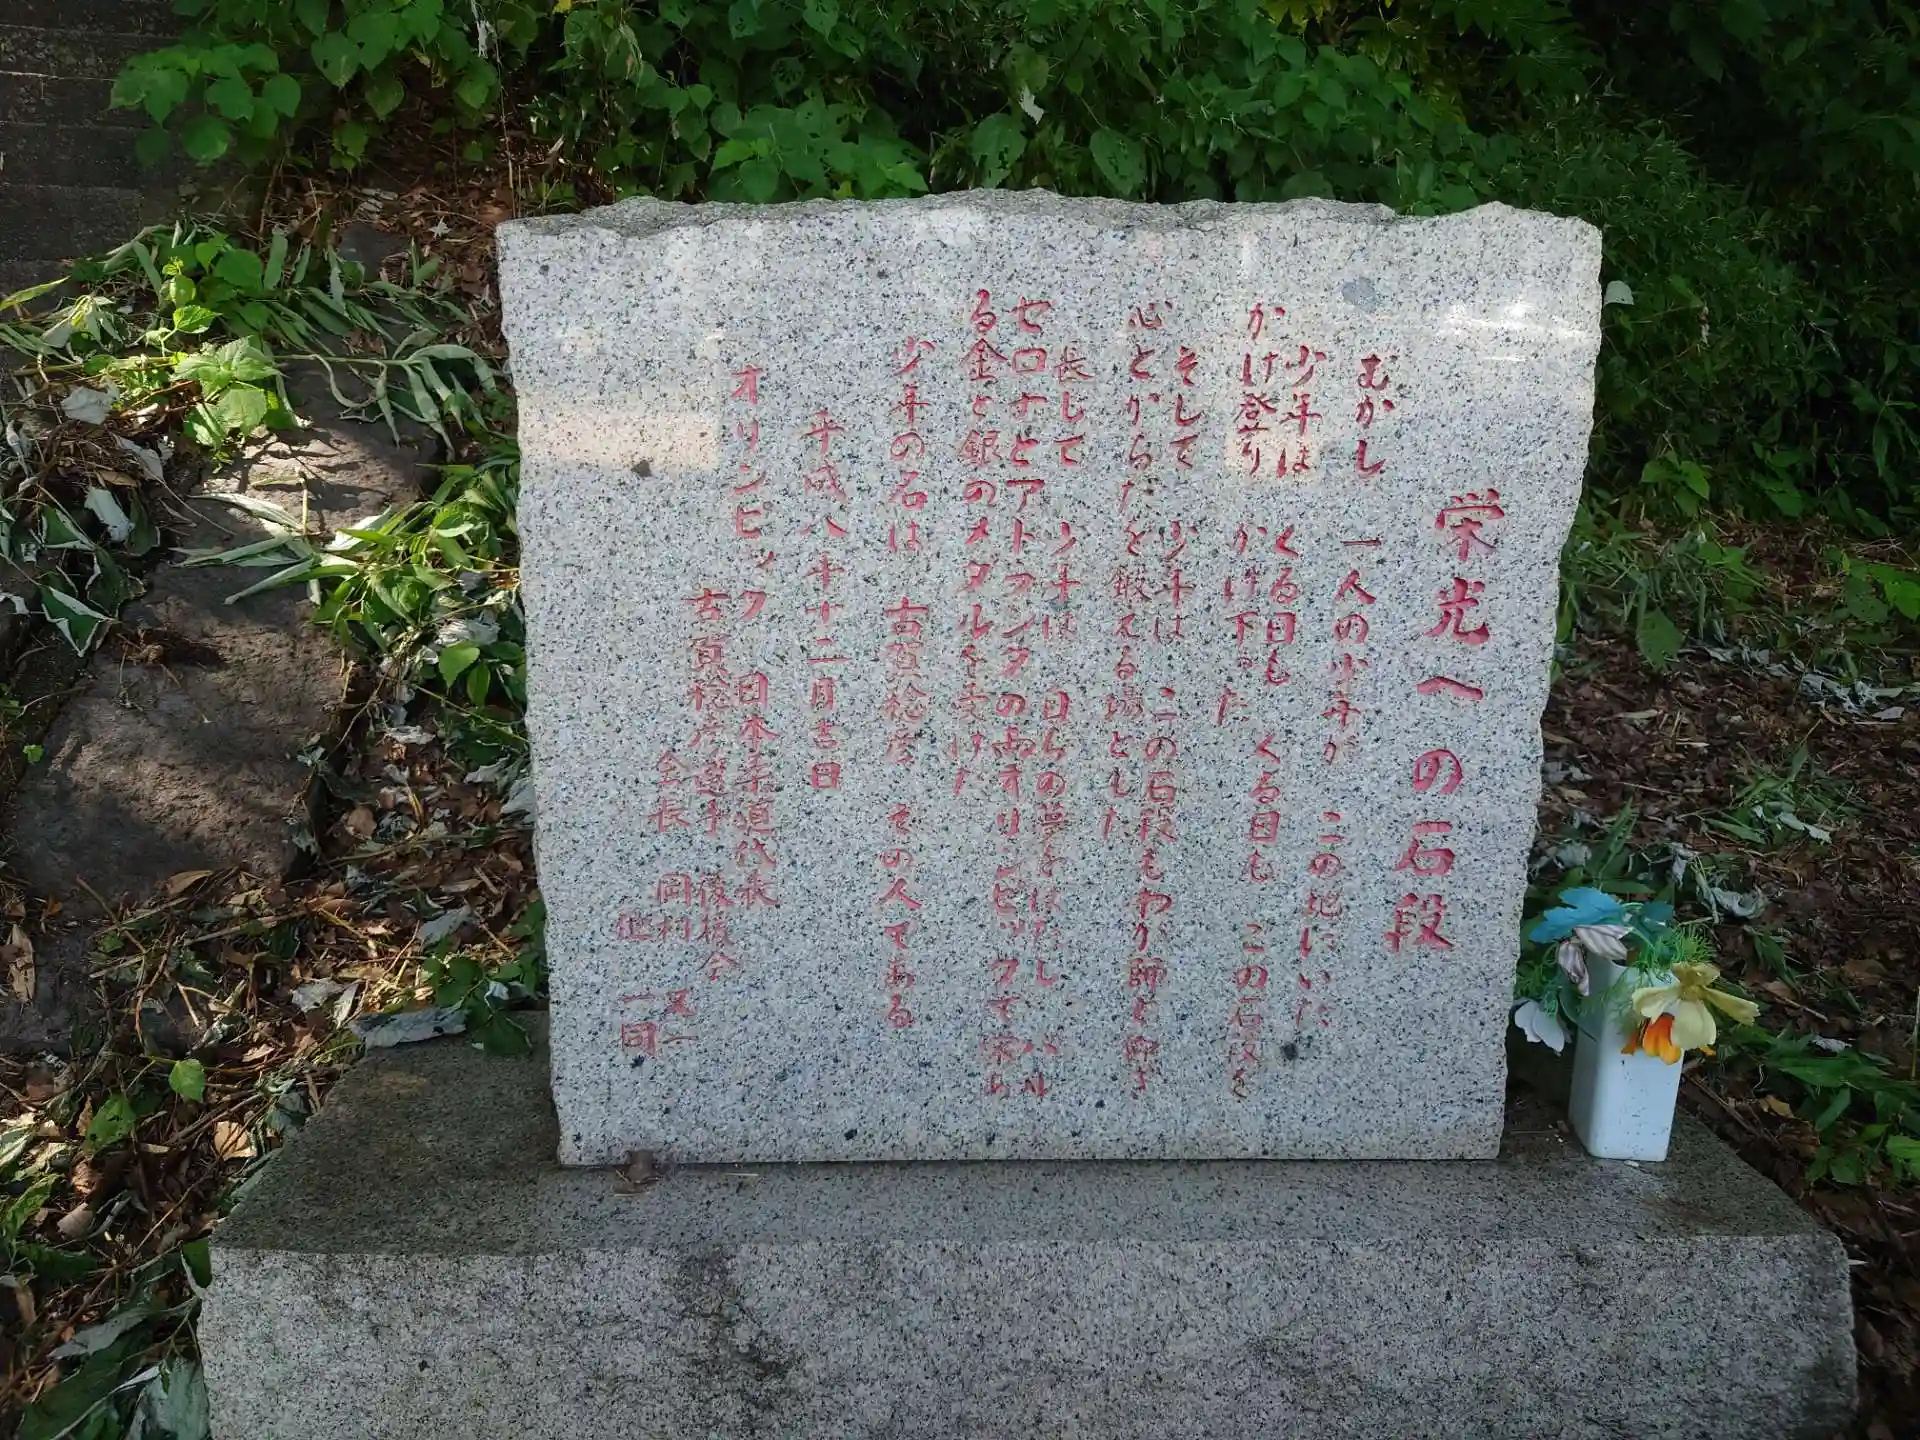 栄光への石段
むかし 一人の少年が この地にいた
少年は くる日も くる日も この石段を
かけ登り かけ下った
そして 少年は この石段もわが師と仰ぎ
心とからだを鍛える場とした
長じて 少年は 日らの夢をはたし バル
セロナとアトランタの両オリンピックで栄あ
る金と銀のメダルを受けた
少年の名は 古賀稔彦 その人である
平成八年十二月吉日
オリンピック 日本柔道代表
古賀稔彦選手 後援会
会長 岡村 又一
他 一同